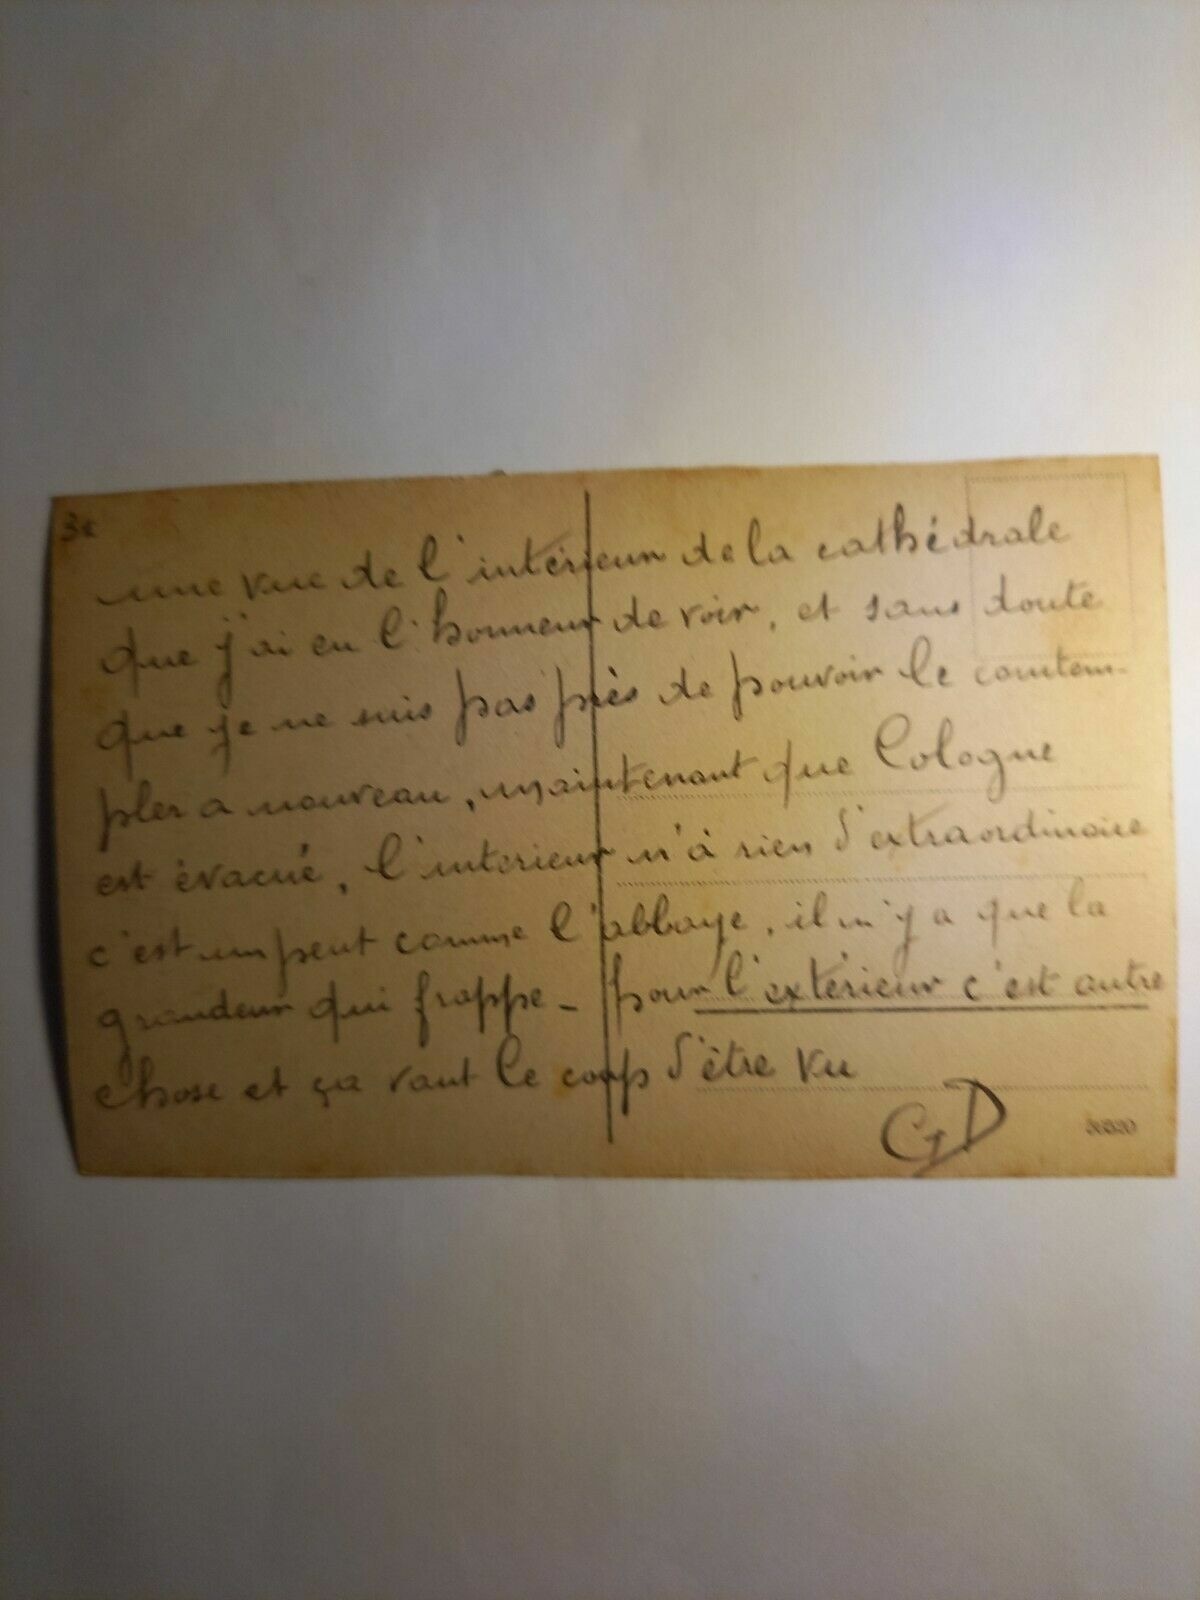 3€
une vue de l'intérieur de la cathédrale
que j'ai eu l'honneur de voir, et sans doute
que je ne suis pas près de pouvoir le contem-
pler a nouveau, maintenant que Cologne
est évacué, l'interieur n'à rien d'extraordinaire
c'est un peut comme l'abbaye, il n'y a que la
grandeur qui frappe - pour l'extérieur c'est autre
chose et ça vaut le coup d'être vu
GD